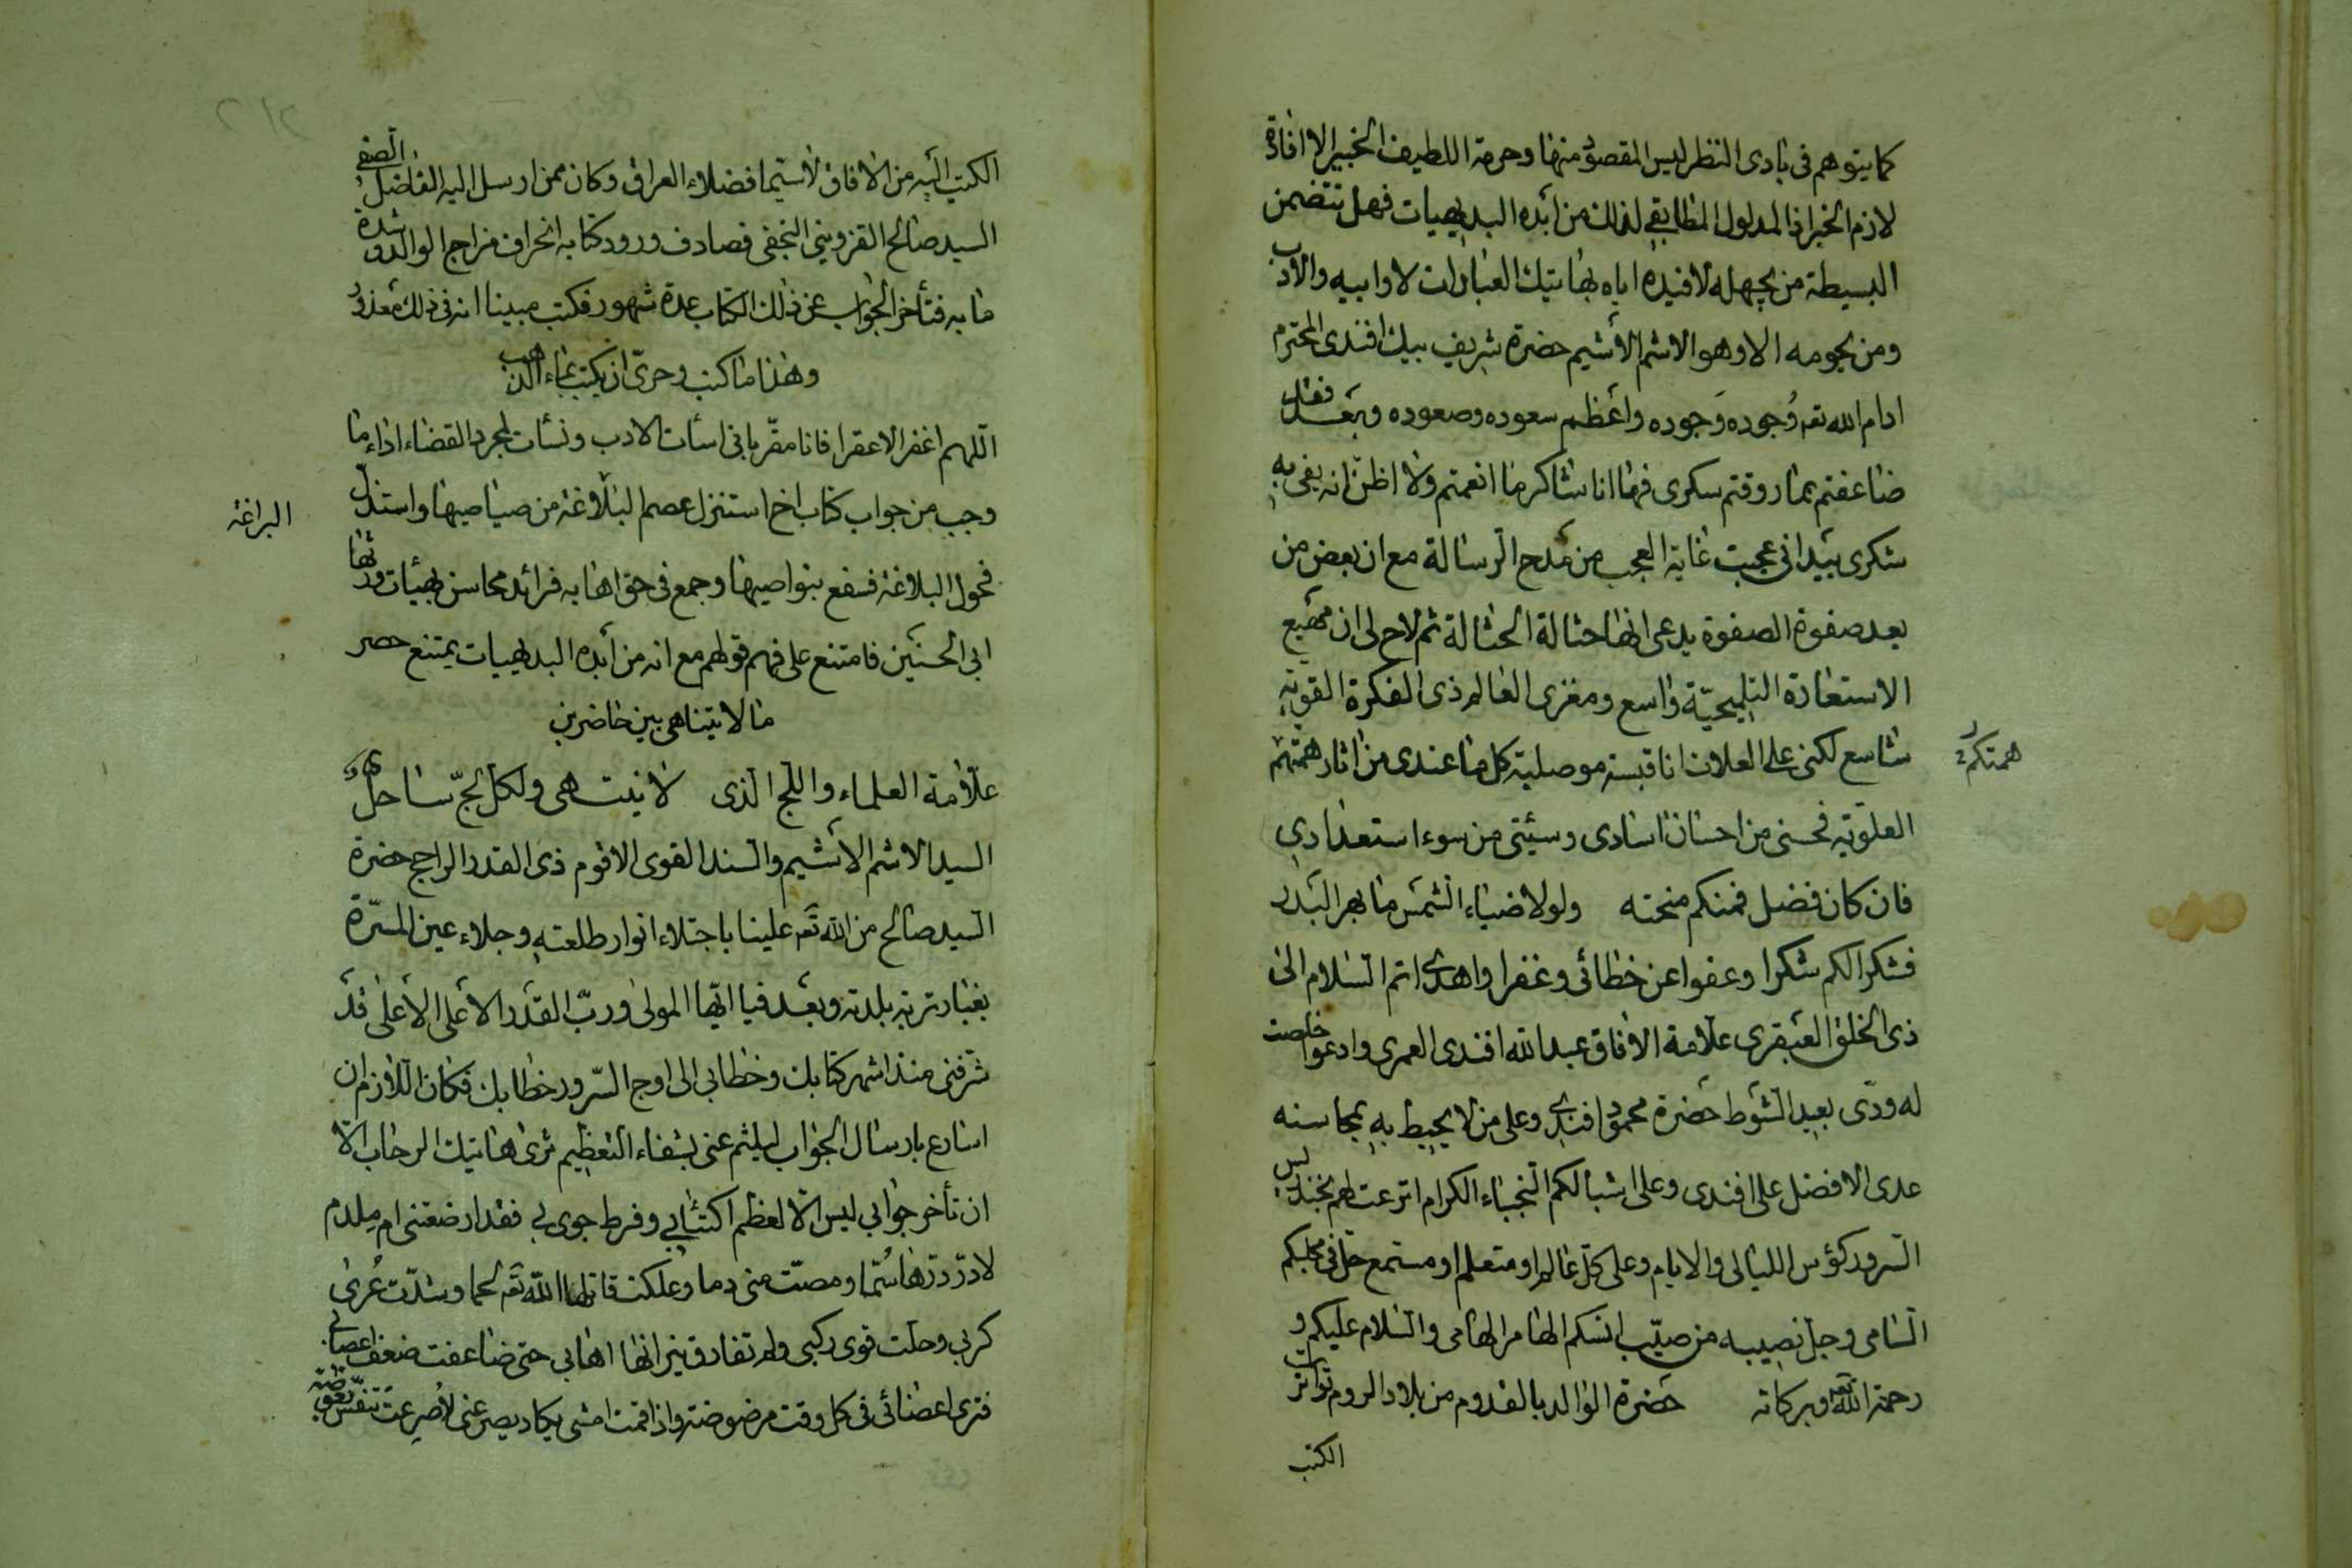 كما يتوهم فى بادى النظر ليس المقصود منها وحرمة اللطيف الخبير الا افادة
لازم الخبر اذ المدلول المطابقى لذلك من ابده البديهيات فهل تتضمن
البسيطة من يجهله لافيده اياه بهاتيك العبارات لا وابيه والادب
ومن يحومه الا وهو الاشم الأشيم حضرة شريف بيك افندى المحترم
ادام الله تعه وُجوده وَجوده واعظم سعوده وصعوده وبعد فقد
ضاعفتم بما روقتم سكرى فها انا شاكر ما انعمتم ولا اظن انه يفى به
شكرى بيد انى عجبت غاية العجب من مدح الرسالة مع ان بعض من
بعد صفوة الصفوة يدعى انها حثالة الحثالة ثم لاح لى ان مهيع
الاستعارة التلميحيّة واسع ومغزى العالم ذى الفكرة القويّه
شاسع لكنى على العلات انا قبسة موصلية كل ما عندى من اثار همتهم
همتكم
العلويّه فحسنى من احسان اسادى وسيئتى من سوء استعدادى
فان كان فضل فمنكم منحته ولولا ضياء الشمس ما بهر البدر
فشكرا لكم شكرا وعفوا عن خطائى وغفرا واهدى اتم السلام الى
ذى الخلق العبقرى علامة الافاق عبد الله افندى العمرى وادعوا خلصت
له ودّى بعيد الشوط حضرة محمود افندى وعلى من لا يحيط به بمحاسنه
عدى الافضل على افندى وعلى اشبالكم النجباء الكرام اترعت لهم بخندريس
السرور كؤس الليالى والايام وعلى كل عالم او متعلم او مستمع حل فى مجلسكم
السامى وجل نصيبه من صيّب انسكم الهامر الهامى والسلام عليكم و
رحمة الله تعه وبركاته حضرة الوالد بالقدوم من بلاد الروم تواترت
الكتب
الكتب اليه من الافاق لاسيما فضلاء العراق وكان ممن ارسل اليه الفاضل الصفى
السيد صالح القزوينى النجفى فصادف ورود كتابه انحراف مزاج الوالد وشدة
ما به فتأخر الجواب عن ذلك الكتاب عدة شهور فكتب مبينا انه فى ذلك معذور
وهذا ما كتب وحرىّ ان يكتب بماء الذهب
اللهم اغفر الاعقرا فانا مقرّ بانى اسأت الادب ونسأت لمجرد القضاء اداء ما
وجب من جواب كتاب اخ استنزل عصم البلاغة من صياصيها واستذل
البراغة
فحول البلاغة فسفع بنواصيها وجمع فى حق اهابه فرائد محاسن بهيئات ورثها
ابى الحسنين فامتنع على فهم قولهم مع انه من أبده البديهيات يمتنع حصر
ما لا يتناهى بين حاضرين
علّامة العلماء واللج الذى لا ينتهى ولكل لجّ ساحل
السيد الاشم الأشيم والسند القوى الاقوم ذى القدر الراجح حضرة
السيد صالح من الله تعه علينا باجتلاء انوار طلعته وجلاء عين المسرّة
بغبار تربة بلدته وبعد فيا ايها المولى وربّ القدر الاعلى الاعلى قد
شرفنى منذ اشهر كتابك وخطابى الى اوج السرور خطابك فكان اللازم ان
اسارع بارسال الجواب ليلثم عنى بشفاه التعظيم ثرى هاتيك الرحاب الا
ان تأخر جوابى ليس الا لعظم اكتئابى وفرط جوى بى فقد ارضعتنى ام ملدم
لا درّ درّها سُمّا ومصّت منى دما وعلكت قاتلها الله تعه لحما وشدّت عُرى
كربى وحلت قوى ركبى ولم تفارق نيرانها اهابى حتى ضاعفت ضعف اعصابى
فترى اعضائى فى كل وقت مرضوضة واذا قمت امشى يكاد يصرعنى لأصرعت تنفّس بعوضة